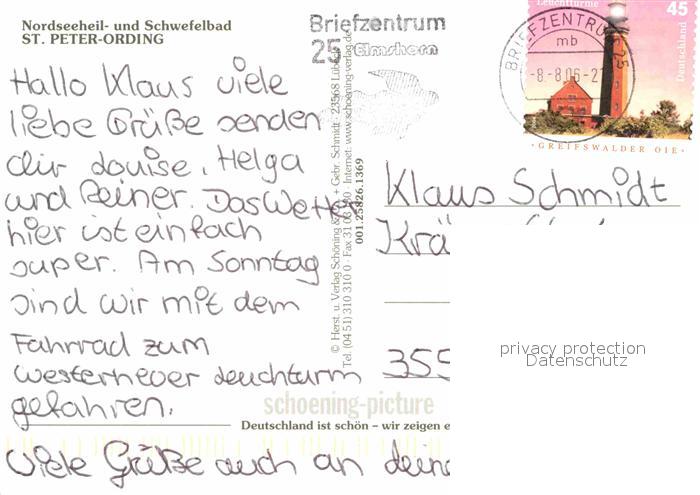 Nordseeheil- und Schwefelbad
ST. PETER-ORDING
Hallo Klaus viele
liebe Grüße senden
dir Louise, Helga
und Reiner. Das Wetter
hier ist einfach
super. Am Sonntag
sind wir mit dem
Fahrrad zum
Westerhever Leuchturm
gefahren.
Viele Grüße auch an deine
Briefzentrum
25 Elmshorn
BRIEFZENTRUM 25
mb
-8-8.06-2
Leuchttürme
45
Deutschland
· GREIFSWALDER OIE ·
© Herst. u. Verlag Schöning & Co. + Gebr. Schmidt · 23568 Lübeck
Tel. (04 51) 310 310 0 · Fax 31 03 · Internet: www.schoening-verlag.de
001.25826.1369
Klaus Schmidt
Krä
355
privacy protection
Datenschutz
schoening-picture
Deutschland ist schön – wir zeigen e